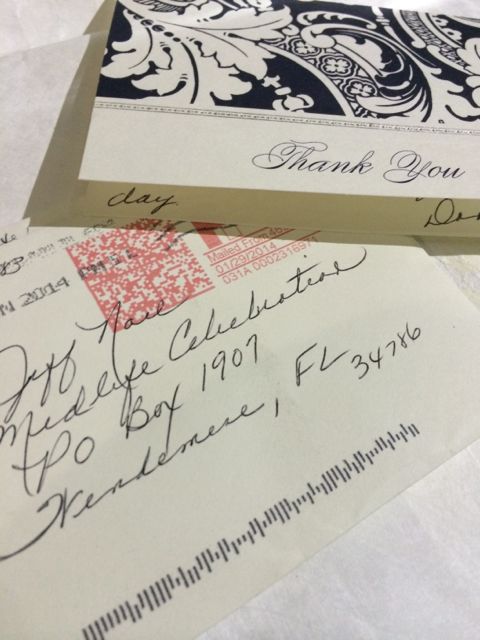 Thank You
day
2014
Mailed From
01/29/2014
031A 0002316971
Jeff
Midlife Celebration
PO Box 1907
Windermere, FL 34786